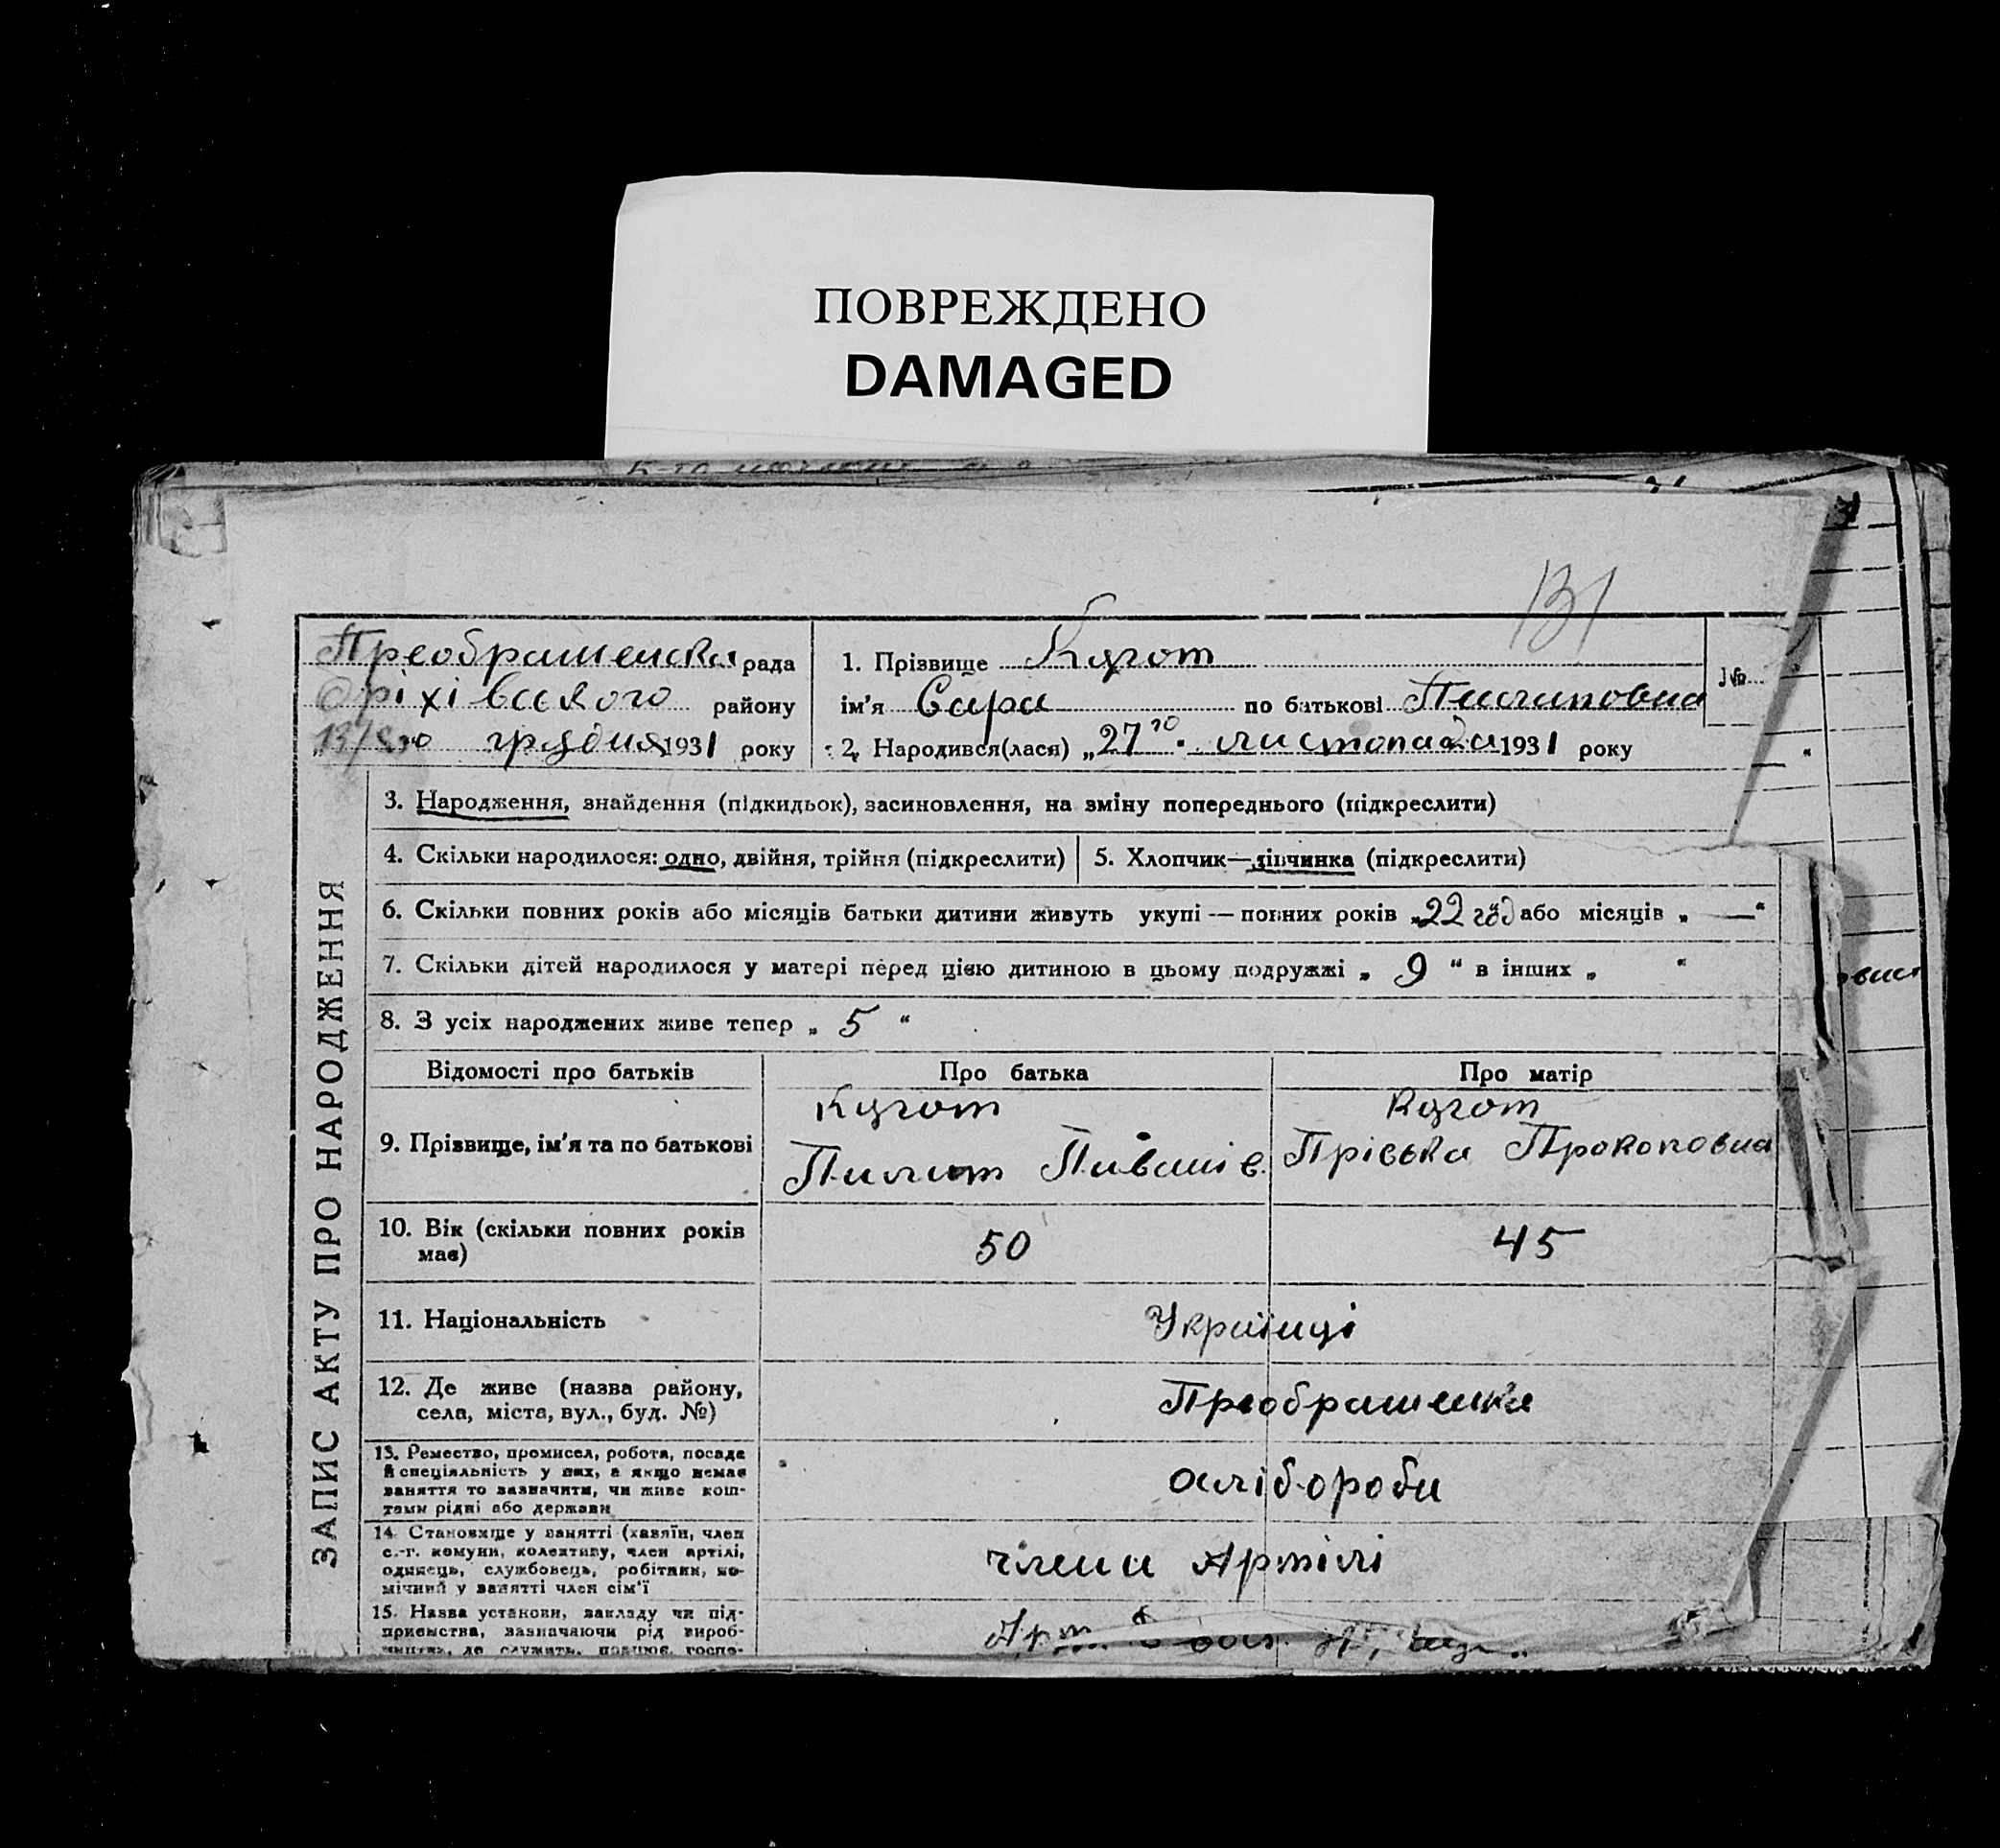 ПОВРЕЖДЕНО
DAMAGED
131
Преображенска рада
Оріхівського району
грудня 1931 року
1. Прізвище Кугот
ім'я Сара по батькові Пилиповна
2. Народився(лася) „27го" листопада 1931 року
№
ЗАПИС АКТУ ПРО НАРОДЖЕННЯ
3. Народження, знайдення (підкидьок), засиновлення, на зміну попереднього (підкреслити)
4. Скільки народилося: одно, двійня, трійня (підкреслити)
5. Хлопчик—дівчинка (підкреслити)
6. Скільки повних років або місяців батьки дитини живуть укупі — повних років „22 год" або місяців „ — “
7. Скільки дітей народилося у матері перед цією дитиною в цьому подружжі „ 9 “ в інших „ “
8. З усіх народжених живе тепер „ 5 “
Відомості про батьків Про батька Про матір
9. Прізвище, ім'я та по батькові
Кугот
Пилип
Кугот
Пріська Прокоповна
10. Вік (скільки повних років
має)
50 45
11. Національність Українці
12. Де живе (назва району,
села, міста, вул., буд. №)
Преображенка
13. Ремество, промисел, робота, посада
й спеціяльність у них, а якщо немає
заняття то зазначити, чи живе кош-
тами рідні або держави
хлібороби
14. Становище у занятті (хазяїн, член
с.-г. комуни, колективу, член артілі,
одинець, службовець, робітник, по-
мічний у занятті член сім'ї
члени Артілі
15. Назва установи, закладу чи під-
приємства, зазначаючи рід вироб-
ництва, де служить, працює, госпо-
Арт.